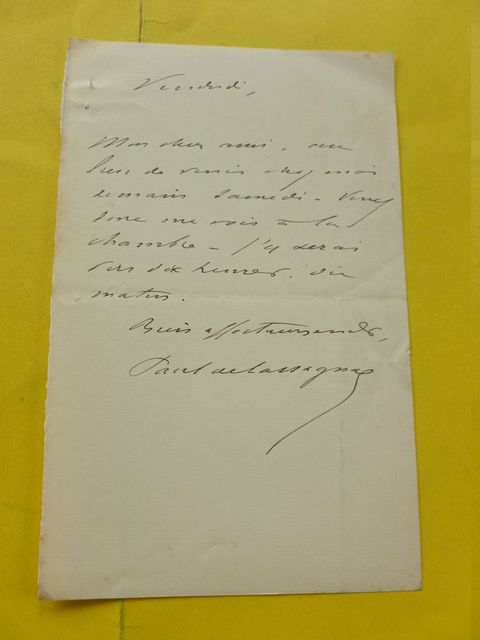 Vendredi,
Mon cher ami, au
lieu de venir chez moi
demain Samedi - Venez
donc me voir à la
chambre - j'y serai
vers dix heures. du
matin.
Bien affectueusement,
Paul de Cassagnac